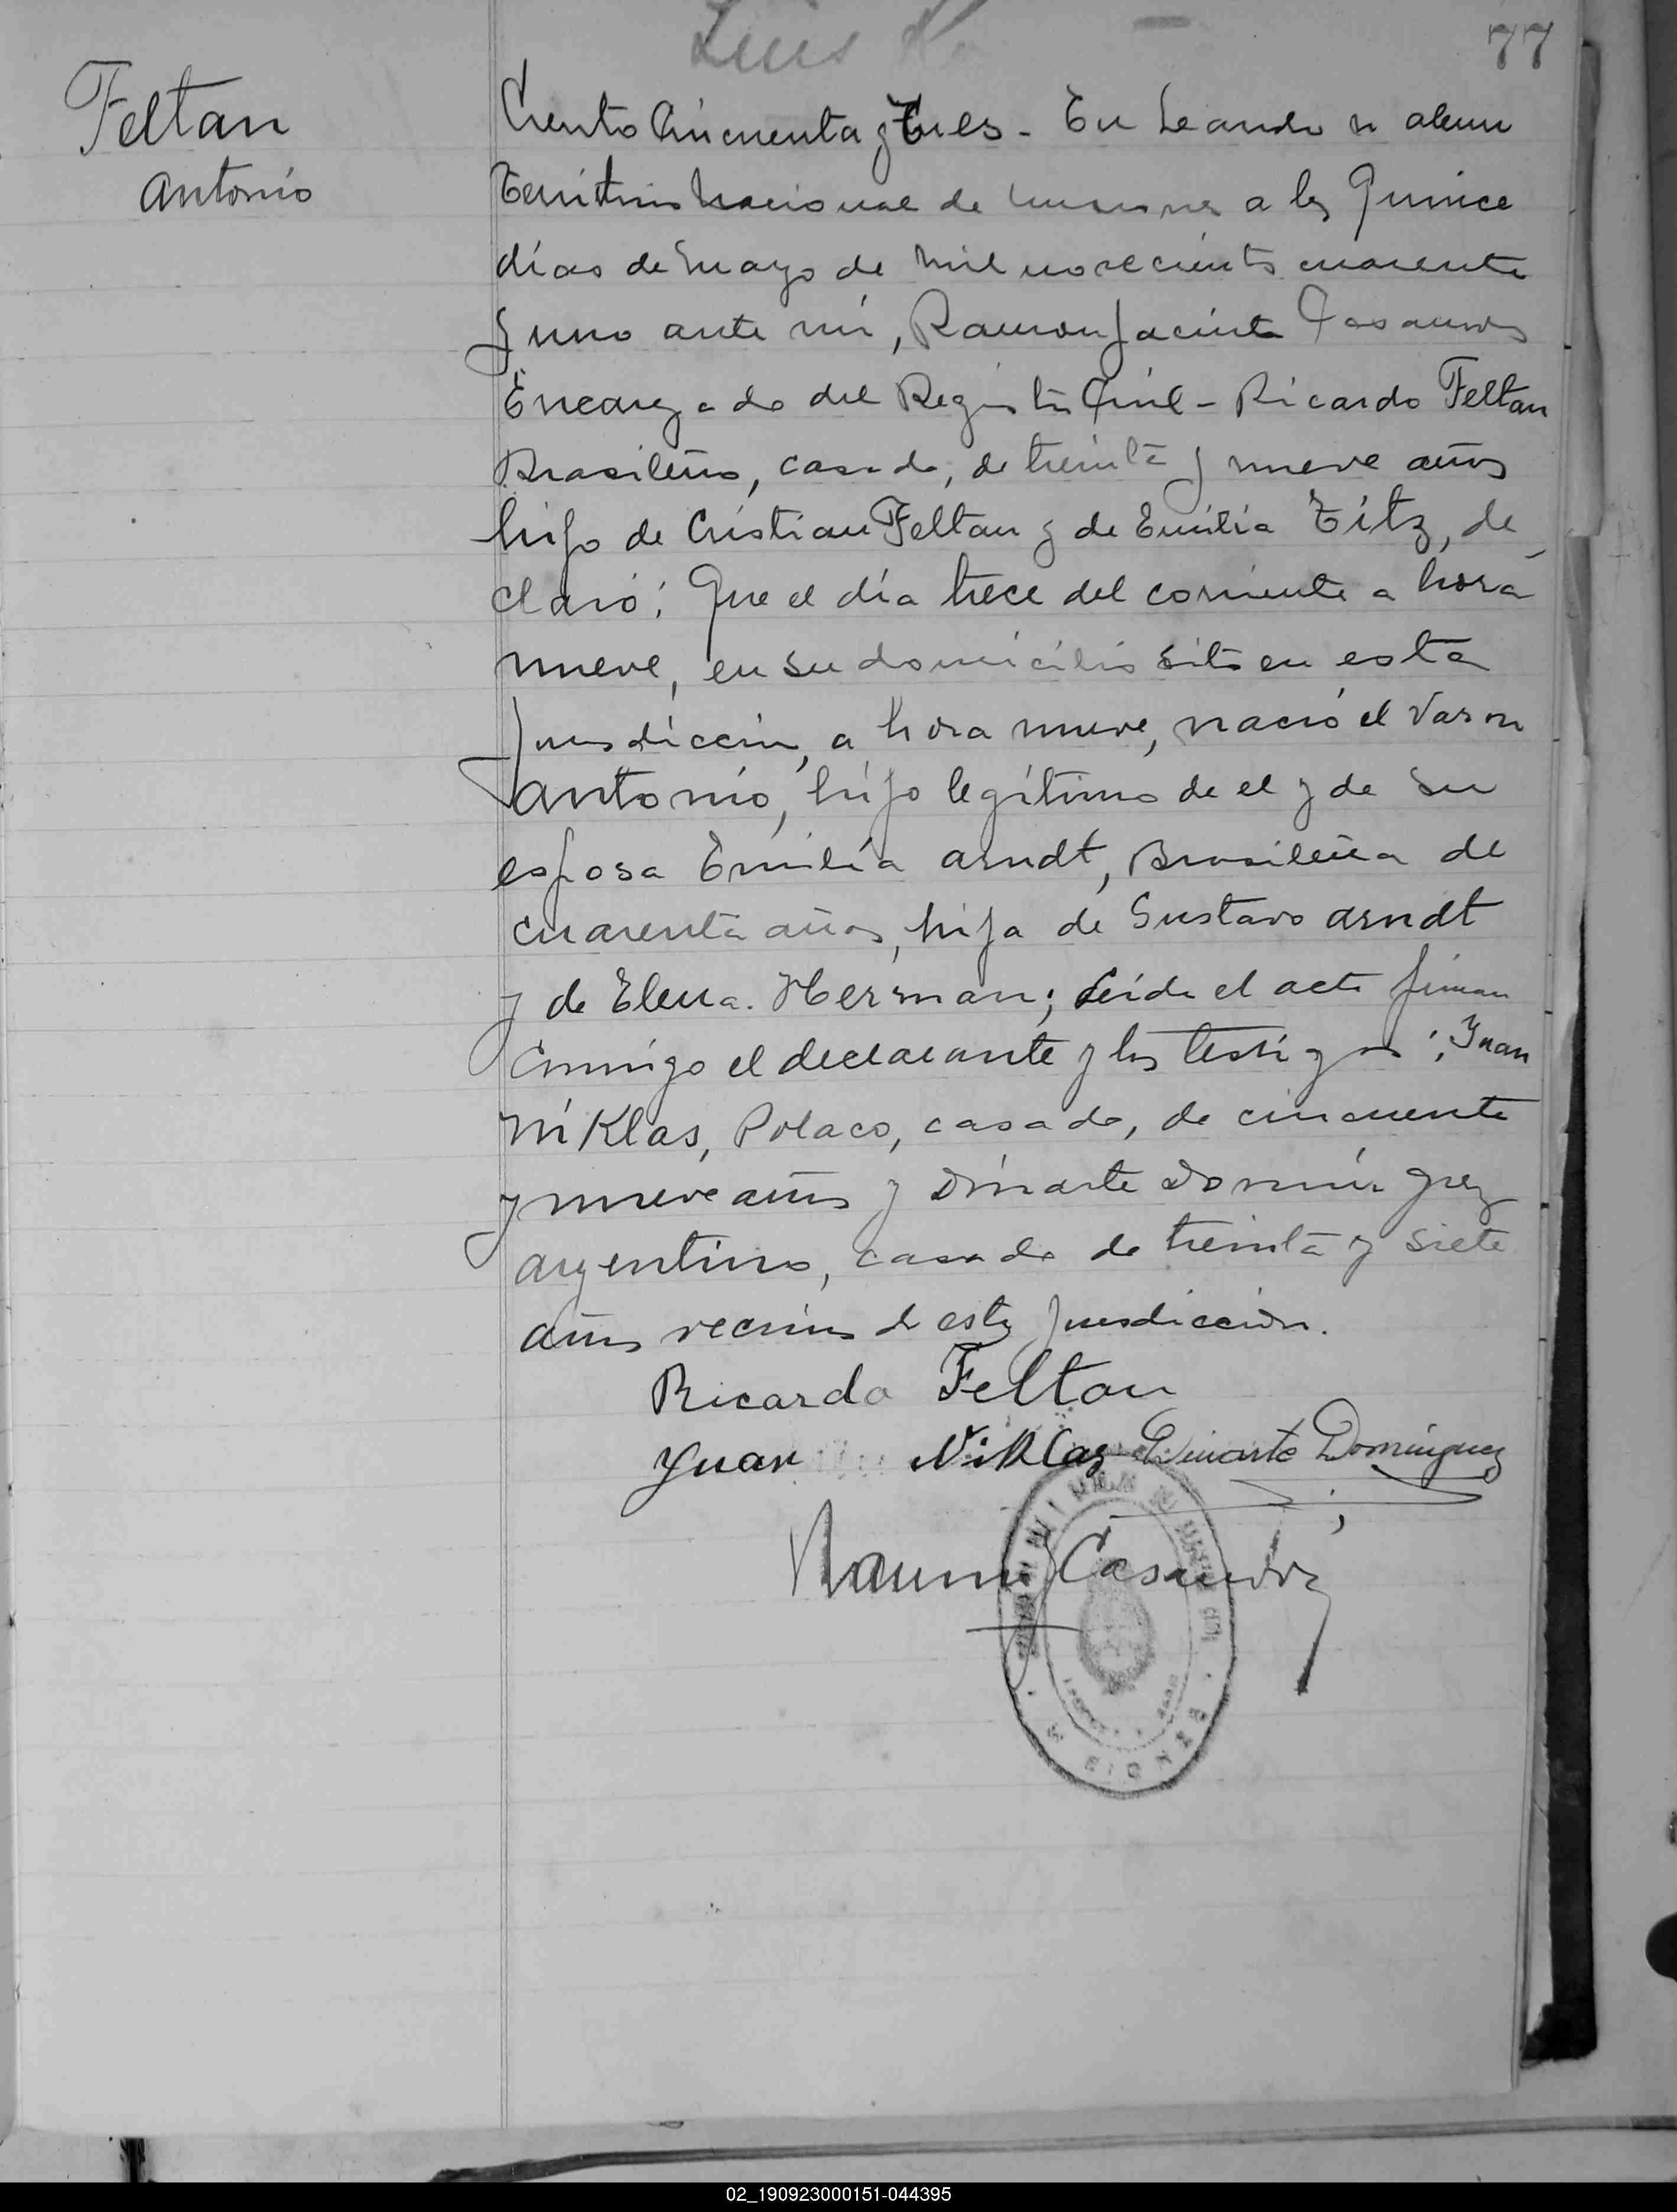 Luis
77
Feltan
Antonio
Ciento Cincuenta y Tres - En Leandro n alem
Territorio Nacional de Misiones a los Quince
días de Mayo de mil novecientos cuarenta
y uno ante mí, Ramon Jacinto Casanova
Encargado del Registro Civil - Ricardo Feltan
Brasileño, casado, de treinta y nueve años
hijo de Cristian Feltan y de Emilia Titz, de
claró: Que el día trece del corriente a hora
nueve, en su domicilio sito en esta
Jurisdicción, a hora nueve, nació el Varon
Antonio, hijo legítimo de el y de su
esposa Emilia Arndt, Brasileña de
cuarenta años, hija de Gustavo Arndt
y de Elena Herman; Leida el acta firman
conmigo el declarante y los testigos: Juan
Niklas, Polaco, casado, de cincuenta
y nueve años y Dinarte Dominguez
argentino, casado de treinta y siete
años vecinos de esta Jurisdicción.
Ricardo Feltan
Yuan Niklas Dinarte Dominguez
Ramon J Casanova
MISIONES
02_190923000151-044395